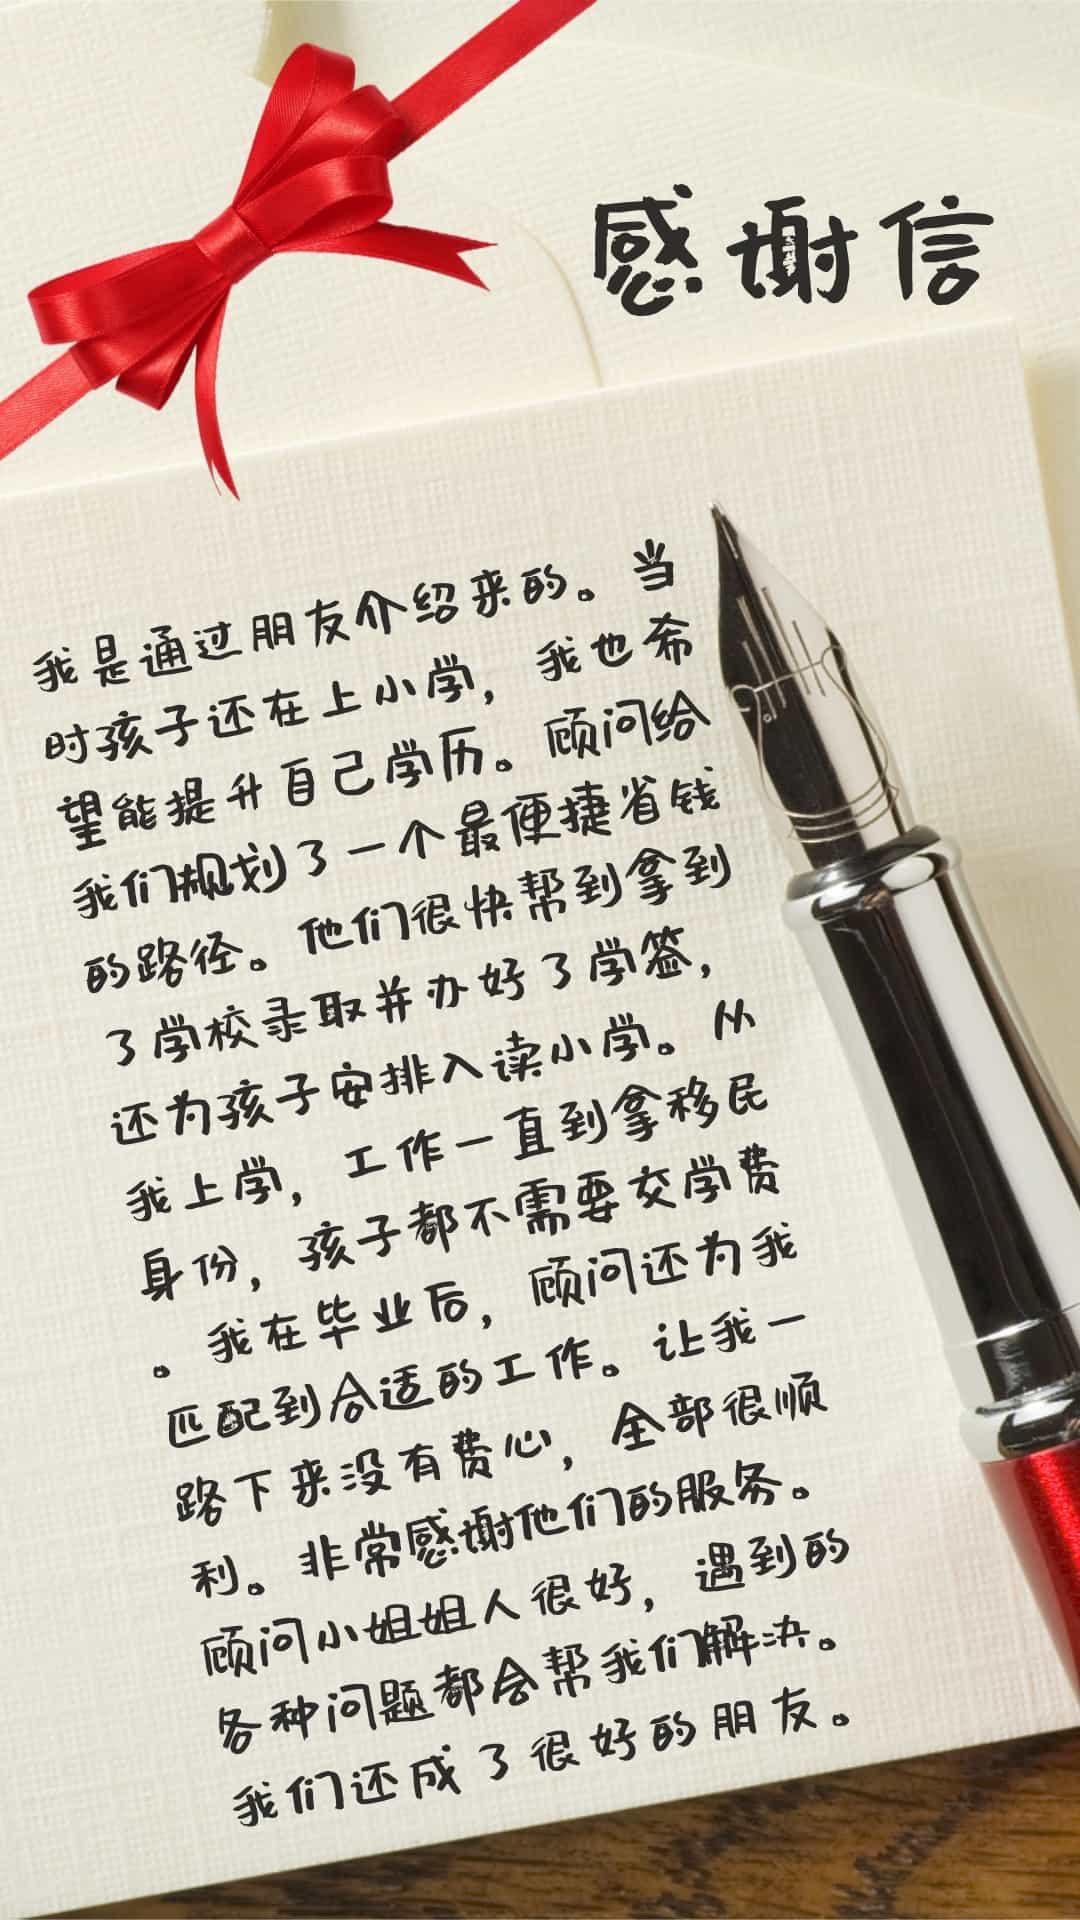 感谢信
我是通过朋友介绍来的。当
时孩子还在上小学，我也希
望能提升自己学历。顾问给
我们规划了一个最便捷省钱
的路径。他们很快帮到拿到
了学校录取并办好了学签，
还为孩子安排入读小学。从
我上学，工作一直到拿移民
身份，孩子都不需要交学费
。我在毕业后，顾问还为我
匹配到合适的工作。让我一
路下来没有费心，全部很顺
利。非常感谢他们的服务。
顾问小姐姐人很好，遇到的
各种问题都会帮我们解决。
我们还成了很好的朋友。